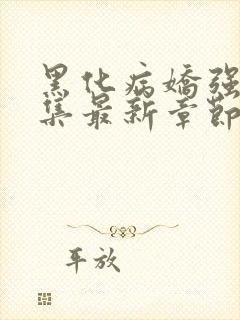 黑化病嬌强
集最新章節
年放